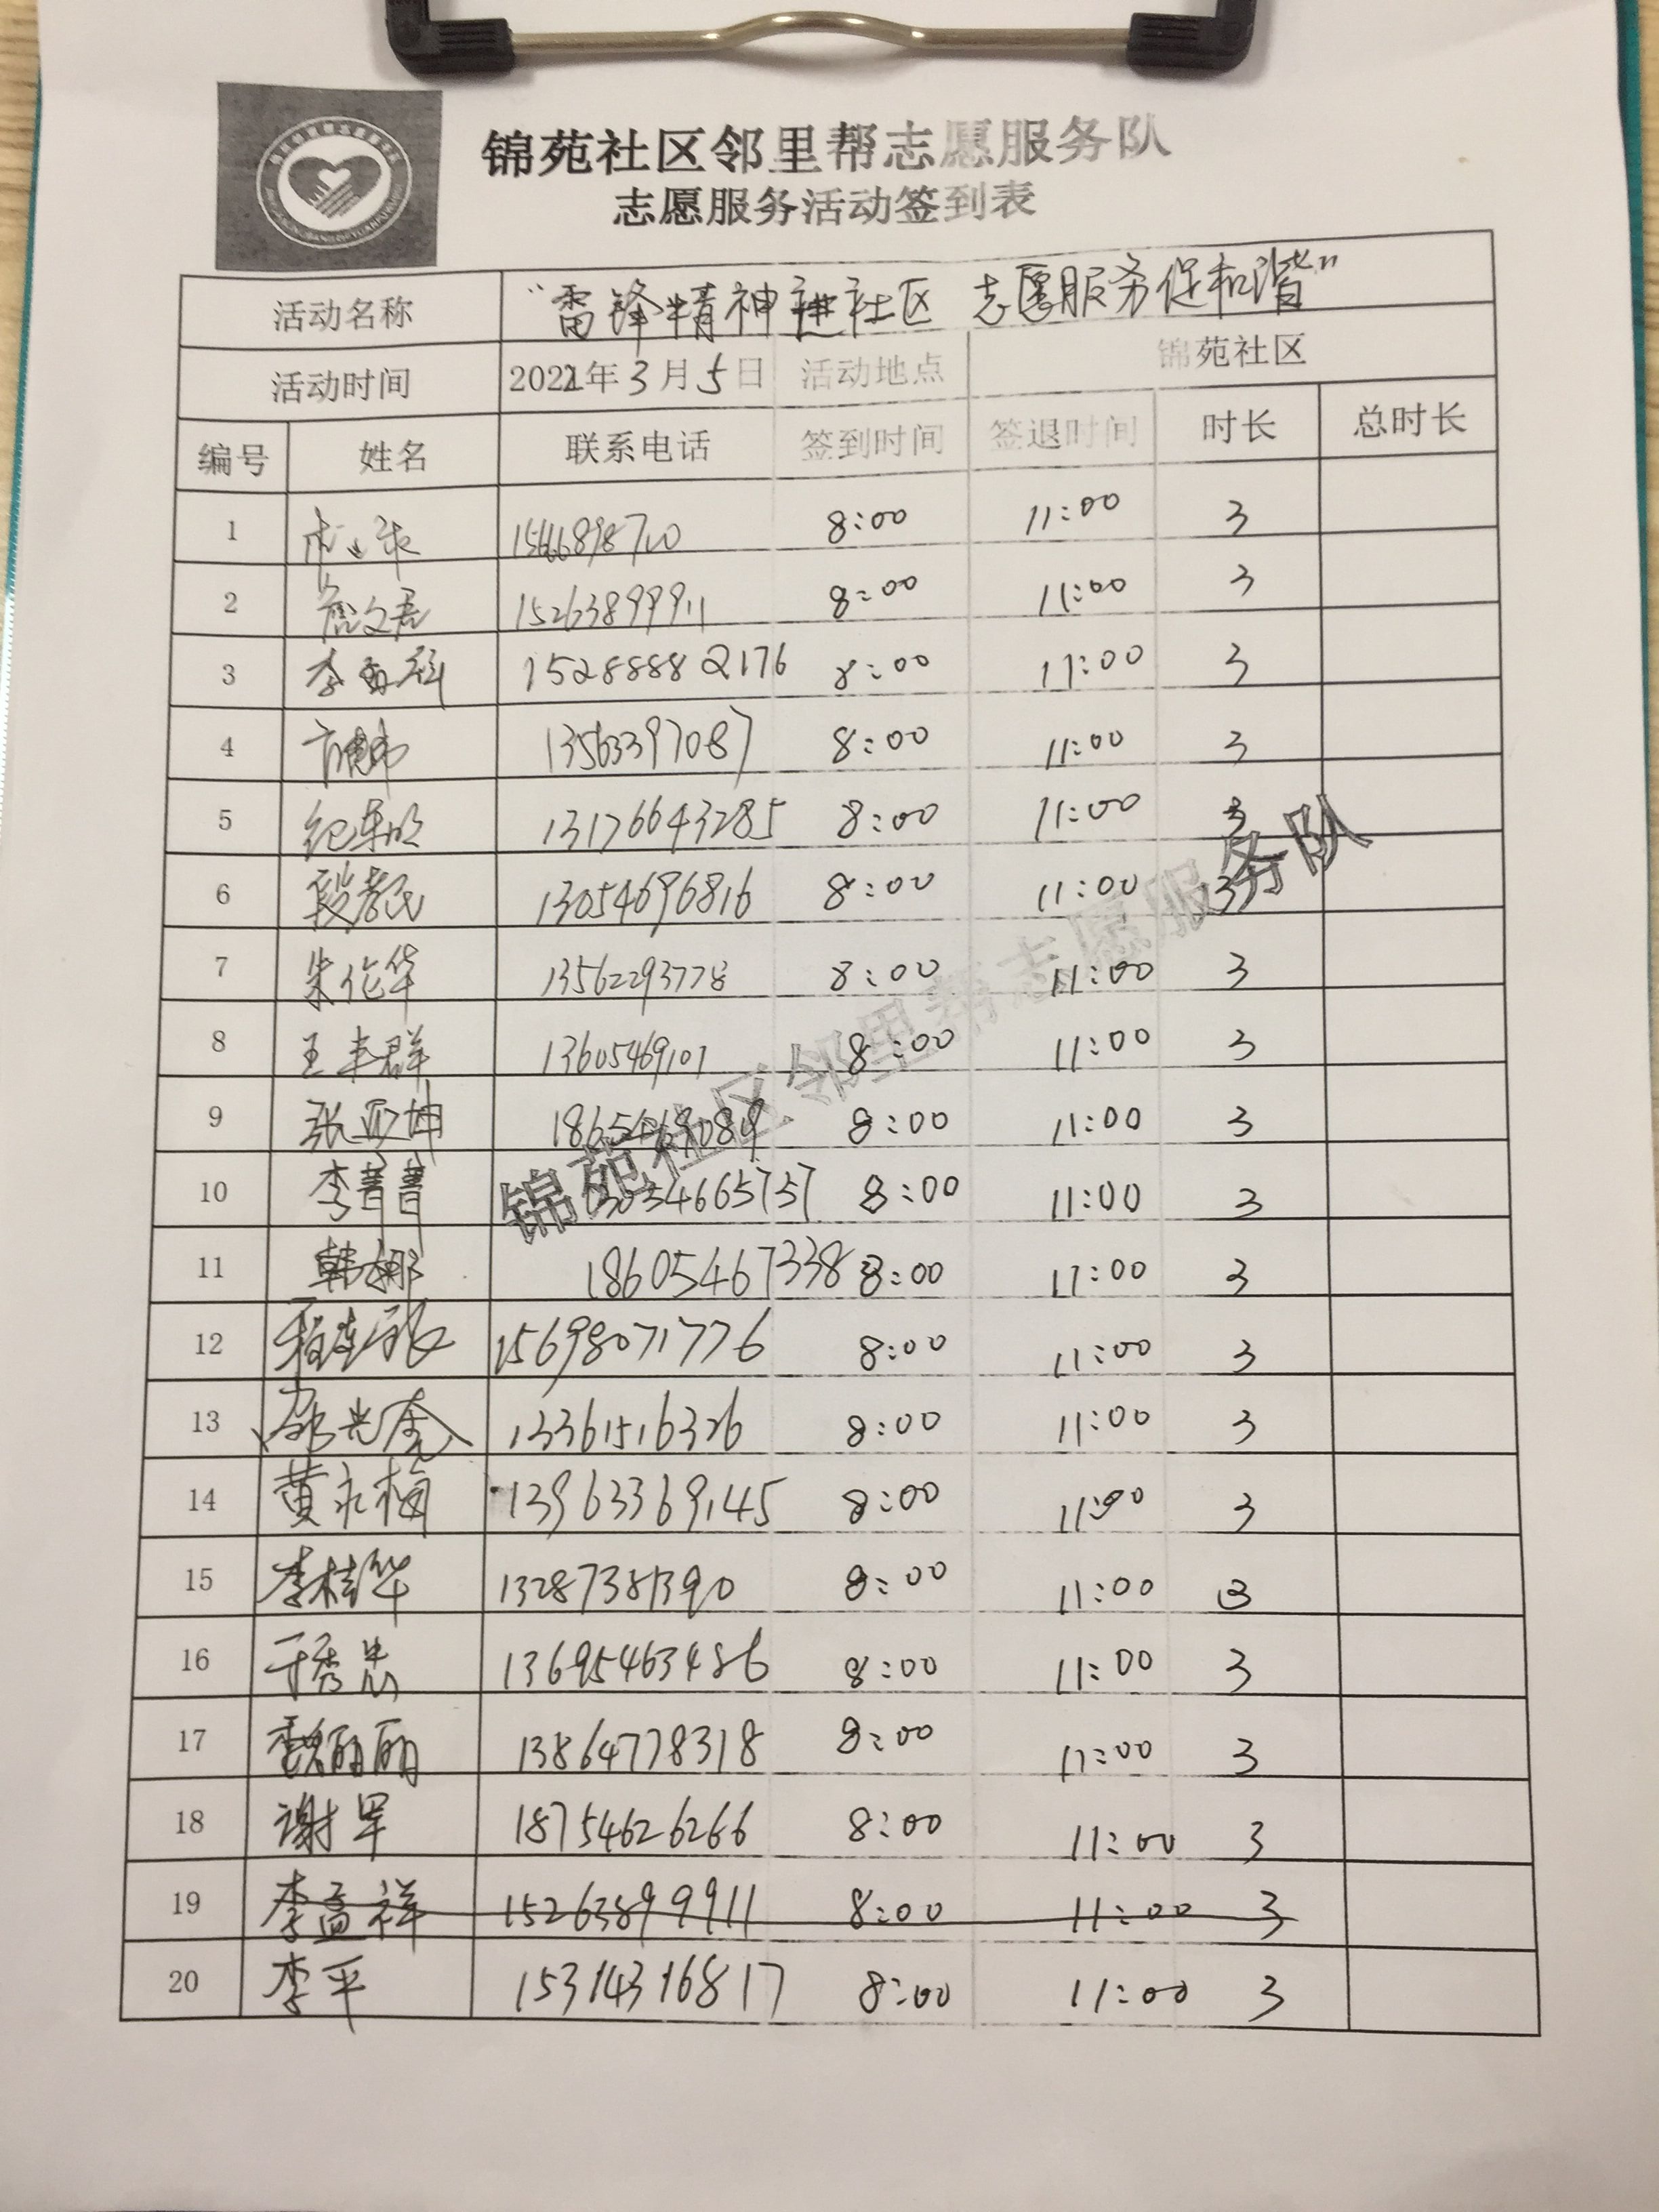 锦苑社区邻里帮志愿服务队
志愿服务活动签到表
活动名称 “雷锋精神进社区 志愿服务促和谐”
活动时间 2022年3月5日 活动地点 锦苑社区
编号 姓名 联系电话 签到时间 签退时间 时长 总时长
1 8:00 11:00 3
2 15263899911 8:00 11:00 3
3 15288882176 8:00 11:00 3
4 13563397087 8:00 11:00 3
5 13176643285 8:00 11:00 3
6 段孝民 13054696816 8:00 11:00 3
7 朱伦华 13562293778 8:00 11:00 3
8 王丰群 13605469101 8:00 11:00 3
9 张亚坤 8:00 11:00 3
10 李普普 13054665757 8:00 11:00 3
11 韩娜 18605467338 8:00 11:00 3
12 15698071776 8:00 11:00 3
13 13361516326 8:00 11:00 3
14 黄永梅 13963369145 8:00 11:00 3
15 李桂华 13287381390 8:00 11:00 3
16 于秀忠 13695463486 8:00 11:00 3
17 魏丽丽 13864778318 8:00 11:00 3
18 谢军 18754626266 8:00 11:00 3
19 李孟祥 15263899911 8:00 11:00 3
20 李平 15314316817 8:00 11:00 3
锦苑社区邻里帮志愿服务队